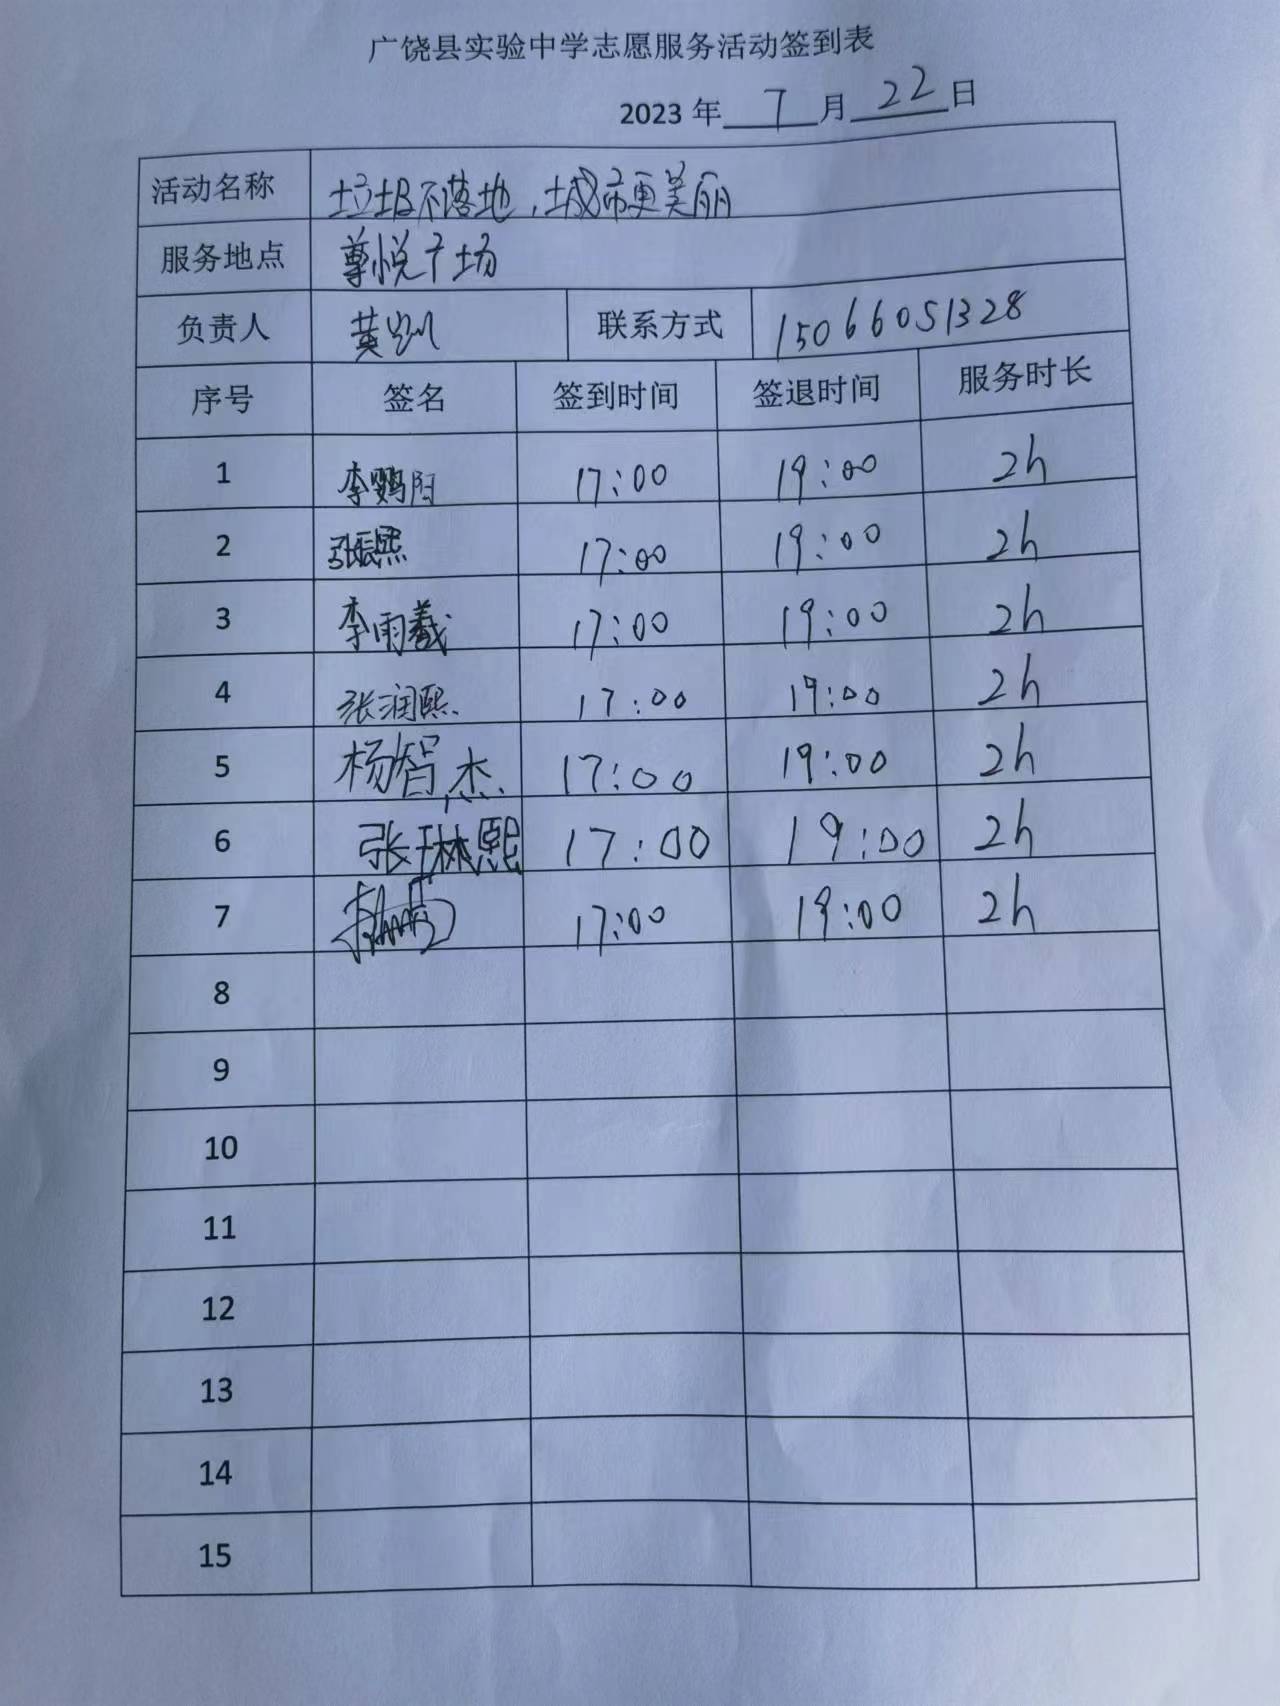 广饶县实验中学志愿服务活动签到表
2023 年 7 月 22 日
活动名称 垃圾不落地，城市更美丽
服务地点 尊悦广场
负责人 黄 联系方式 15066051328
序号 签名 签到时间 签退时间 服务时长
1 李鹦 17:00 19:00 2h
2 张振熙 17:00 19:00 2h
3 李雨羲 17:00 19:00 2h
4 张润熙 17:00 19:00 2h
5 杨智杰 17:00 19:00 2h
6 张琳熙 17:00 19:00 2h
7 17:00 19:00 2h
8
9
10
11
12
13
14
15